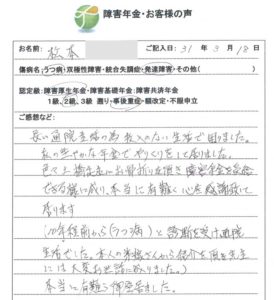 障害年金・お客様の声
お名前: 松本
ご記入日: 31年3月18日
傷病名: うつ病・双極性障害・統合失調症・発達障害・その他( )
認定級: 障害厚生年金・障害基礎年金・障害共済年金
1級、2級、3級 遡り・事後重症・額改定・不服申立
ご感想など:
長い通院生活の為 収入のない生活で困りました。
私の
年金でやりくりをして居りました。
色々と
お骨折り頂き 障害年金を受給
できる様に成り、本当に有難く心から感謝致して
居ります
(10年
前から(うつ病)と診断を受け通院
生活でした。本人の
さんから紹介を頂き先生
には大変お世話になりました。)
本当に有難う御座居ました。